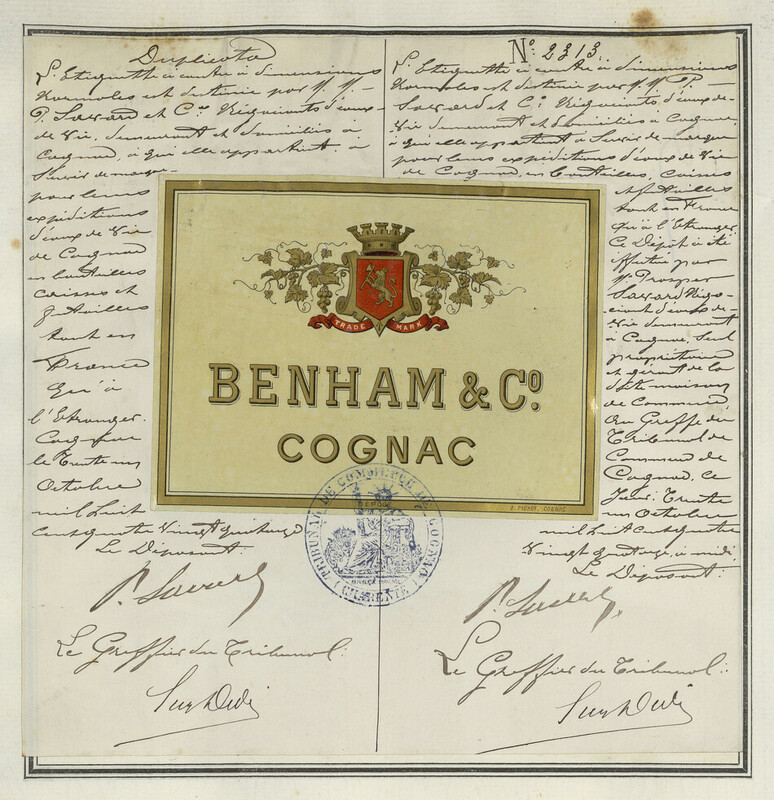 Duplicata
L'Etiquette ci contre, à dimensions
normales est destinée par M. M.
P. Savard et Cie Négociants d'eaux-
de-Vie, demeurant et domiciliés à
Cognac, à qui elle appartient, à
Servir de marque
pour leurs
expéditions
d'eaux de Vie
de Cognac
en bouteilles
caisses et
futailles
tant en
France
qu'à
l'Etranger.
Cognac
le Trente un
Octobre
mil huit
cent quatre Vingt quatorze
Le Déposant.
P. Savard
Le Greffier du Tribunal:
No. 2313.
L'Etiquette ci contre, à dimensions
normales est destinée par M. M. P.
Savard et Cie Négociants d'eaux-de-
Vie demeurant et domiciliés à Cognac,
à qui elle appartient à Servir de marque
pour leurs expéditions d'eaux de Vie
de Cognac, en bouteilles, caisses
et futailles
tant en France
qu'à l'Etranger.
Ce Dépôt a été
effectué par
Mr Prosper
Savard Négo-
ciant d'eaux-de-
Vie demeurant
à Cognac, Seul
propriétaire
et gérant de la
dite maison
de Commerce,
au Greffe du
Tribunal de
Commerce de
Cognac, ce
Jour, Trente
un Octobre
mil huit cent quatre
Vingt quatorze, à midi
Le Déposant:
P. Savard
Le Greffier du Tribunal:
TRADE MARK
BENHAM & Co.
COGNAC
TRIBUNAL DE COMMERCE DE COGNAC
DÉPOT
(CHARENTE)